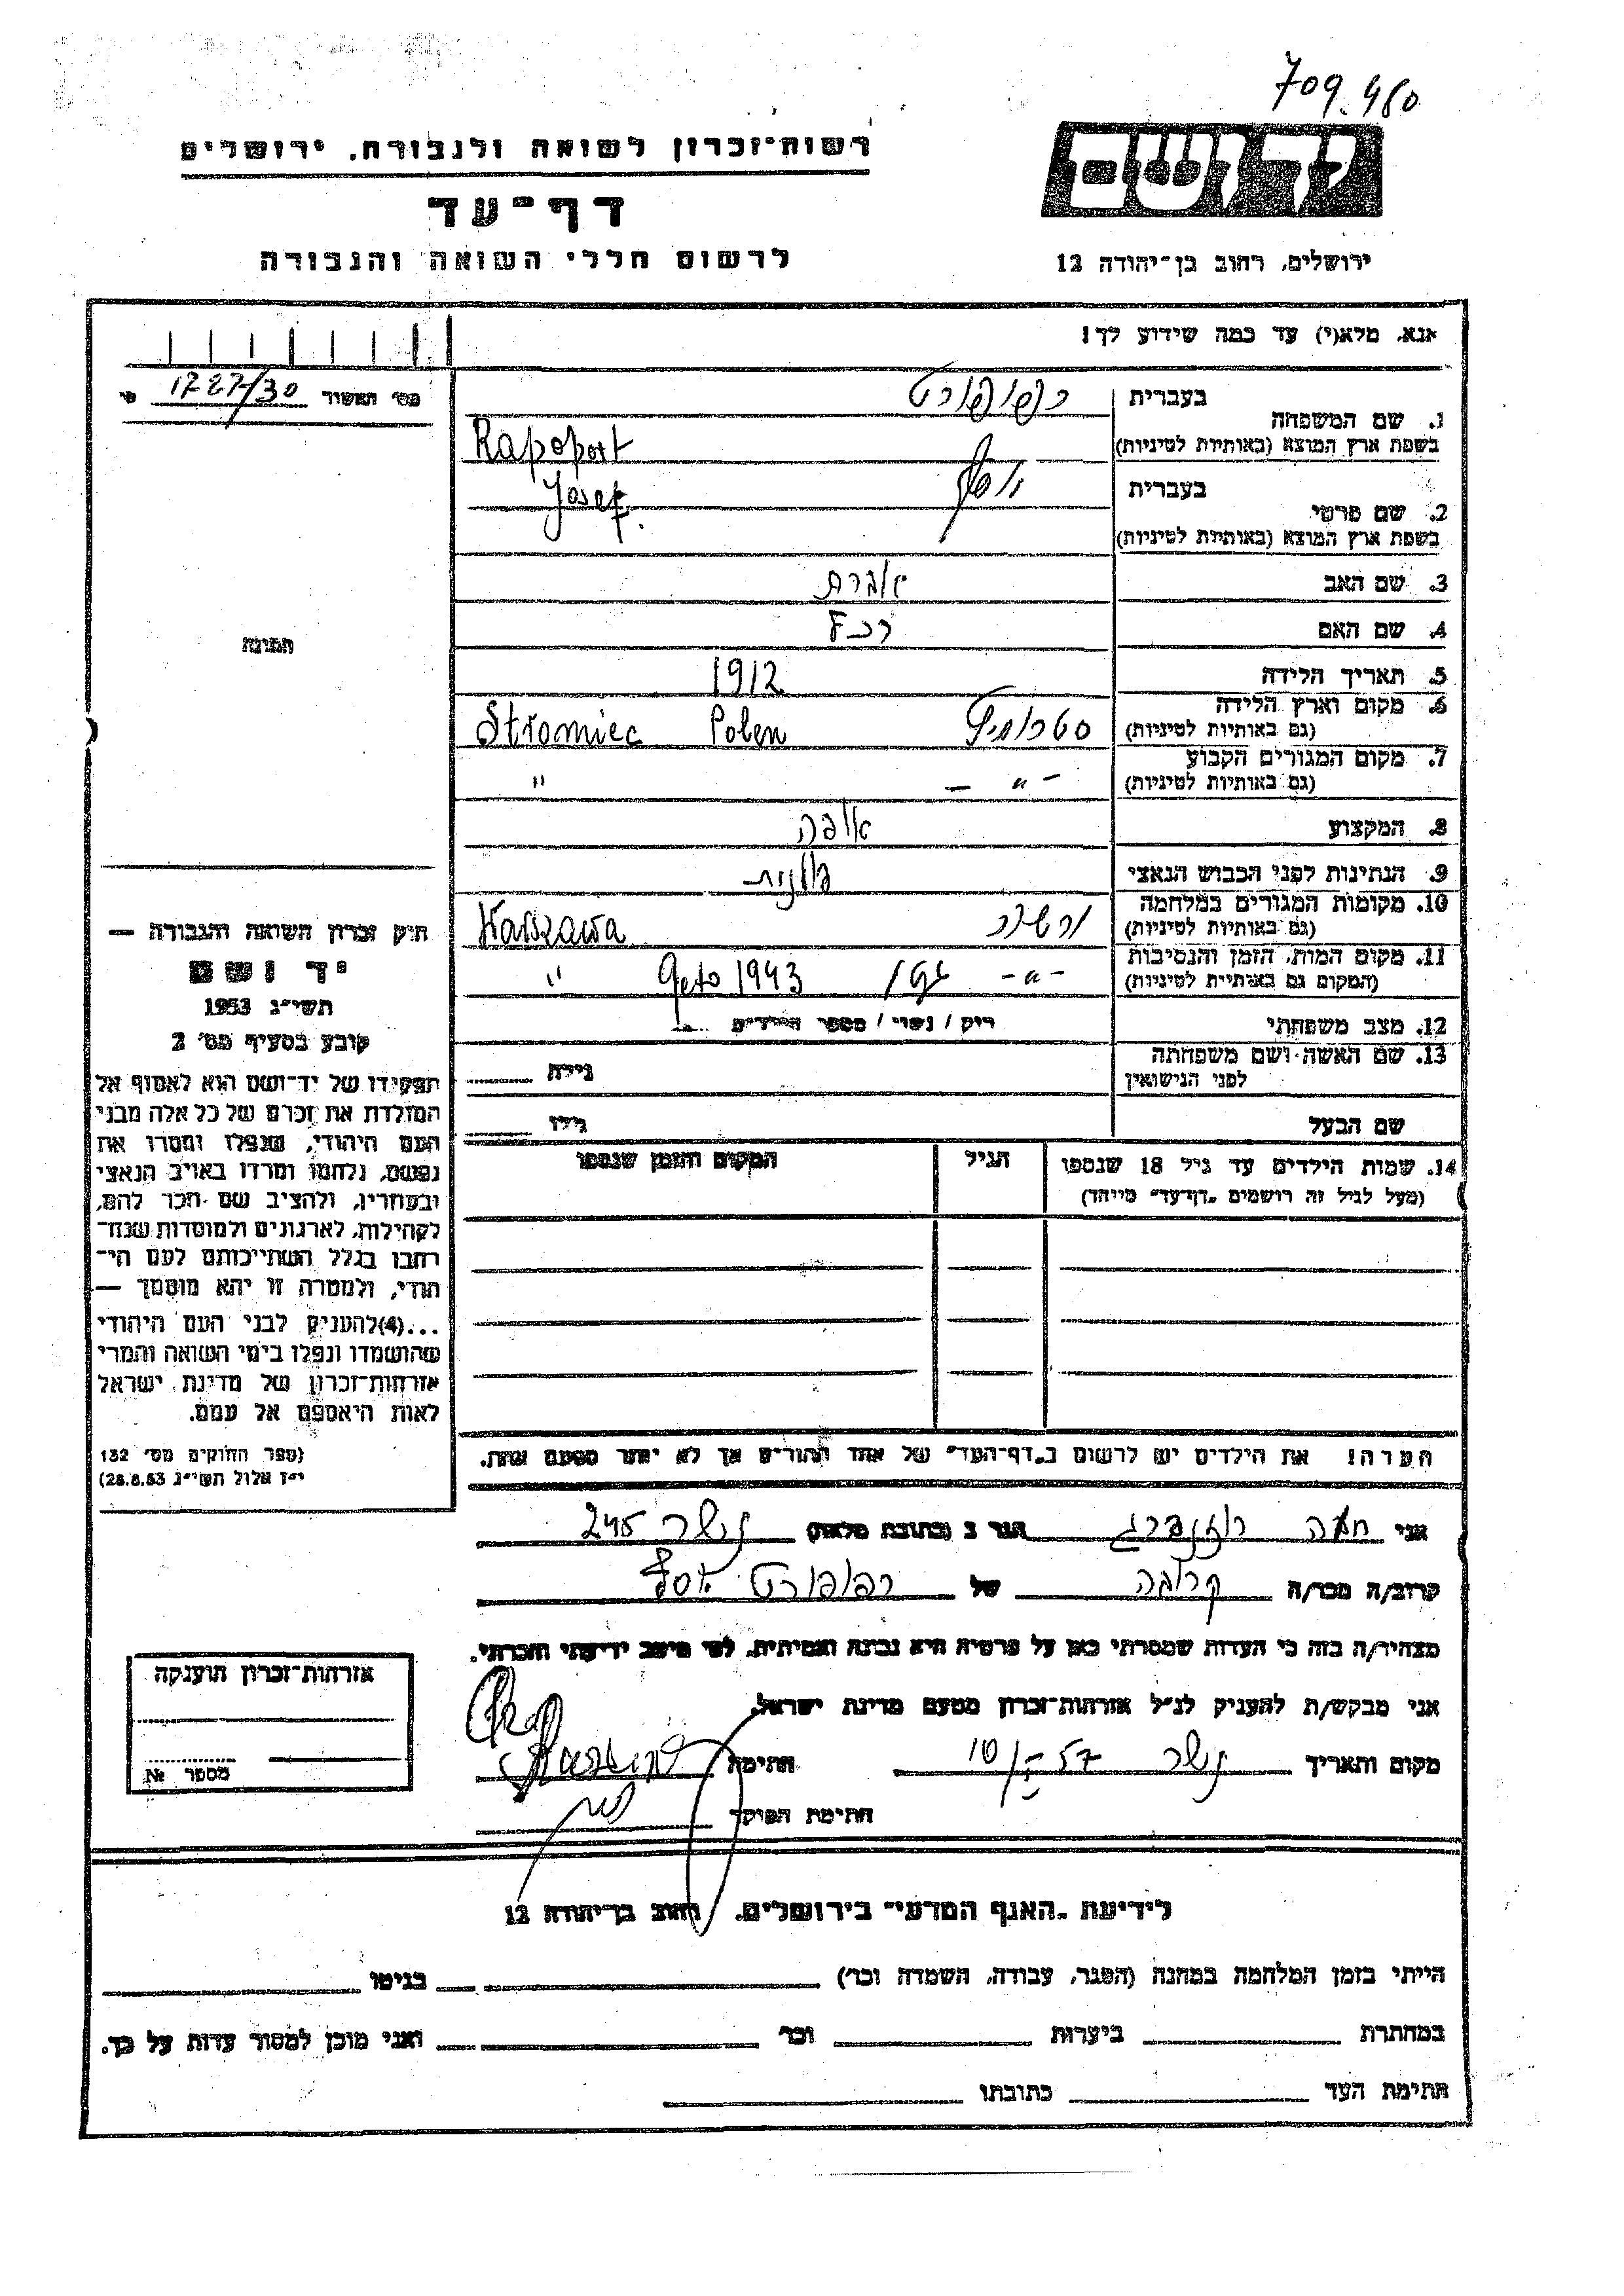 709.460
רשות־זכרון לשואה ולגבורה. ירושלים
דף־עד
לרשום חללי השואה והגבורה
יד ושם
ירושלים, רחוב בן־יהודה 12
אנא, מלא(י) עד כמה שידוע לך!
מס' האשור 1727/30
1. שם המשפחה
בעברית רפופורט
בשפת ארץ המוצא (באותיות לטיניות) Rapoport
2. שם פרטי
בעברית יוסף
בשפת ארץ המוצא (באותיות לטיניות) Josef.
3. שם האב
4. שם האם
5. תאריך הלידה 1912
6. מקום וארץ הלידה
(גם באותיות לטיניות) Stromiec Polen
7. מקום המגורים הקבוע
(גם באותיות לטיניות) - " - "
8. המקצוע אופה
9. הנתינות לפני הכבוש הנאצי פולנית
10. מקומות המגורים במלחמה
(גם באותיות לטיניות) ורשה Warszawa
11. מקום המות, הזמן והנסיבות
(המקום גם באותיות לטיניות) - " - Geto 1943 "
12. מצב משפחתי רוק / נשוי / מספר הילדים
13. שם האשה ושם משפחתה
לפני הנישואין גילה
שם הבעל גילו
14. שמות הילדים עד גיל 18 שנספו
(מעל לגיל זה רושמים „דף־עד" מיוחד)
הגיל
המקום והזמן שנספו
הערה! את הילדים יש לרשום ב„דף־העד" של אחד ההורים אך לא יותר מפעם אחת.
תמונה
חוק זכרון השואה והגבורה —
יד ושם
תשי״ג 1953
קובע בסעיף מס' 2
תפקידו של יד־ושם הוא לאסוף אל
המולדת את זכרם של כל אלה מבני
העם היהודי, שנפלו ומסרו את
נפשם, נלחמו ומרדו באויב הנאצי
ובעוזריו, ולהציב שם וזכר להם,
לקהילות, לארגונים ולמוסדות שנח־
רבו בגלל השתייכותם לעם הי־
הודי, ולמטרה זו יהא מוסמך —
...(4)להעניק לבני העם היהודי
שהושמדו ונפלו בימי השואה והמרי
אזרחות־זכרון של מדינת ישראל
לאות היאספם אל עמם.
(ספר החוקים מס' 132
י״ז אלול תשי״ג 28.8.53)
אני חוה רוזנברג הגר ב (כתובת מלאה) נשר 245
קרוב/ה מכר/ה קרובה של רפופורט יוסף
מצהיר/ה בזה כי העדות שמסרתי כאן על פרטיה היא נכונה ואמיתית, לפי מיטב ידיעתי והכרתי.
אני מבקש/ת להעניק לנ״ל אזרחות־זכרון מטעם מדינת ישראל.
מקום ותאריך נשר 57 חתימה
חתימת הפוקד
אזרחות־זכרון הוענקה
מספר №
לידיעת „האגף המדעי" בירושלים. רחוב בן־יהודה 12
הייתי בזמן המלחמה במחנה (הסגר, עבודה, השמדה וכו') בגיטו
במחתרת ביערות וכו' ואני מוכן למסור עדות על כך.
חתימת העד כתובתו